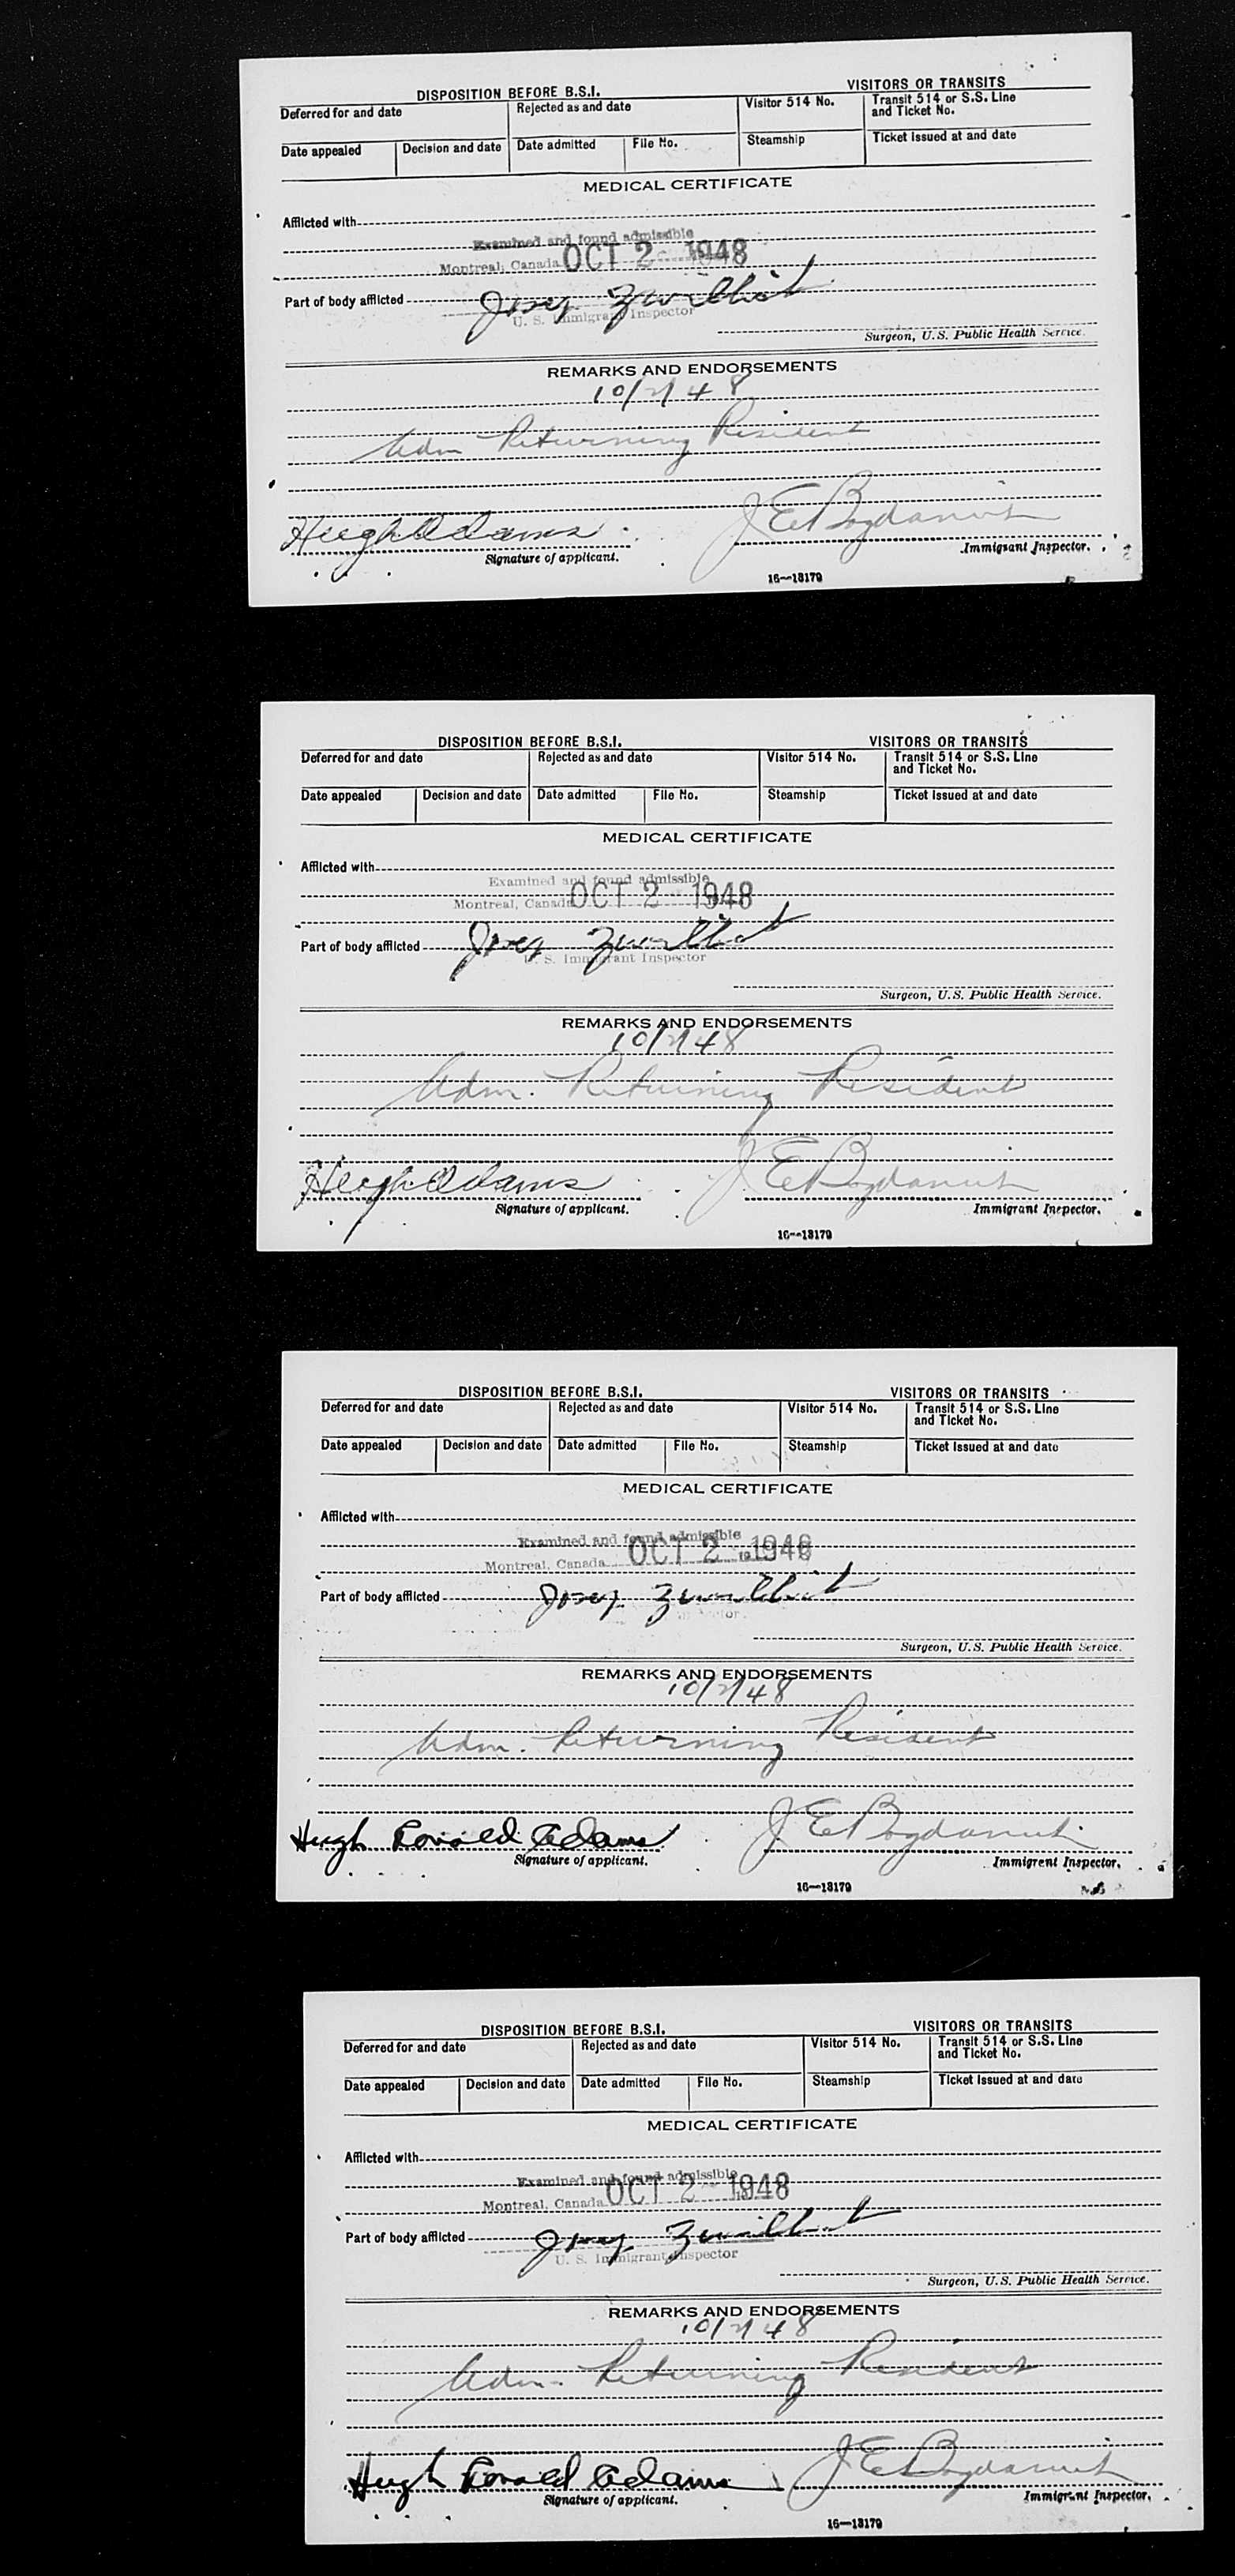 DISPOSITION BEFORE B.S.I. VISITORS OR TRANSITS
Deferred for and date Rejected as and date Visitor 514 No. Transit 514 or S.S. Line and Ticket No.
Date appealed Decision and date Date admitted File No. Steamship Ticket issued at and date
MEDICAL CERTIFICATE
Afflicted with
Examined and found admissible
Montreal, Canada OCT 2 1948
Part of body afflicted
U. S. Immigrant Inspector
Surgeon, U.S. Public Health Service.
REMARKS AND ENDORSEMENTS
10/2/48
Adm Returning Resident
Hugh Adams
Signature of applicant. Immigrant Inspector.
16—13179
DISPOSITION BEFORE B.S.I. VISITORS OR TRANSITS
Deferred for and date Rejected as and date Visitor 514 No. Transit 514 or S.S. Line and Ticket No.
Date appealed Decision and date Date admitted File No. Steamship Ticket issued at and date
MEDICAL CERTIFICATE
Afflicted with
Examined and found admissible
Montreal, Canada OCT 2 1948
Part of body afflicted
U. S. Immigrant Inspector
Surgeon, U.S. Public Health Service.
REMARKS AND ENDORSEMENTS
10/2/48
Adm. Returning Resident
Hugh Adams
Signature of applicant. Immigrant Inspector.
16—13179
DISPOSITION BEFORE B.S.I. VISITORS OR TRANSITS
Deferred for and date Rejected as and date Visitor 514 No. Transit 514 or S.S. Line and Ticket No.
Date appealed Decision and date Date admitted File No. Steamship Ticket issued at and date
MEDICAL CERTIFICATE
Afflicted with
Examined and found admissible
Montreal, Canada OCT 2 1948
Part of body afflicted
Surgeon, U.S. Public Health Service.
REMARKS AND ENDORSEMENTS
10/2/48
Adm. Returning Resident
Hugh Ronald Adams
Signature of applicant. Immigrant Inspector.
16—13179
DISPOSITION BEFORE B.S.I. VISITORS OR TRANSITS
Deferred for and date Rejected as and date Visitor 514 No. Transit 514 or S.S. Line and Ticket No.
Date appealed Decision and date Date admitted File No. Steamship Ticket issued at and date
MEDICAL CERTIFICATE
Afflicted with
Examined and found admissible
Montreal, Canada OCT 2 1948
Part of body afflicted
U. S. Immigrant Inspector
Surgeon, U.S. Public Health Service.
REMARKS AND ENDORSEMENTS
10/2/48
Adm. Returning Resident
Hugh Ronald Adams
Signature of applicant. Immigrant Inspector.
16—13179